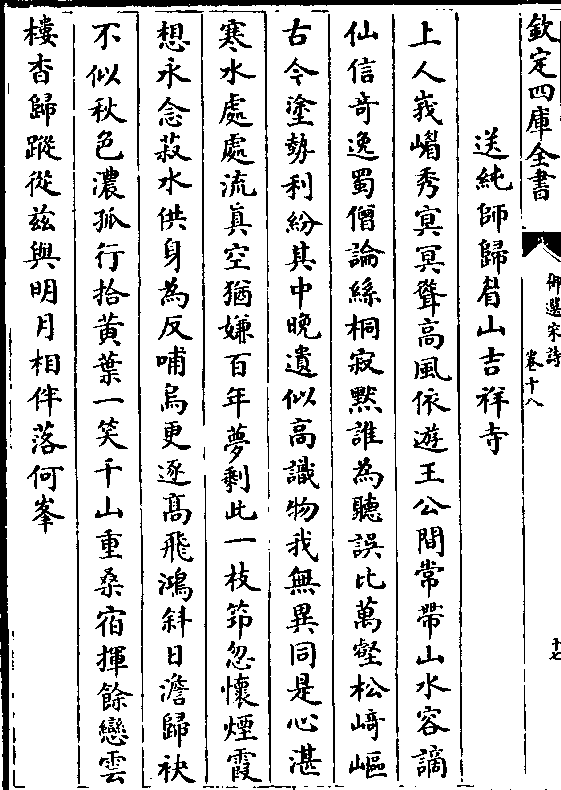 欽定四庫全書
御選宋詩
卷十八
十七
送純師歸眉山吉祥寺
上人峩嵋秀㝠冥聳高風依遊王公間常帶山水容謫
仙信奇逸蜀僧論絲桐寂默誰為聽誤比萬壑松﨑嶇
古今塗勢利紛其中晚遺似高識物我無異同是心湛
寒水處處流真空猶嫌百年夢剰此一枝笻忽懷煙霞
想永念菽水供身為反哺烏更逐髙飛鴻斜日澹歸袂
不似秋色濃孤行拾黃葉一笑千山重桑宿揮餘戀雲
棲杳歸蹤從兹與明月相伴落何峯